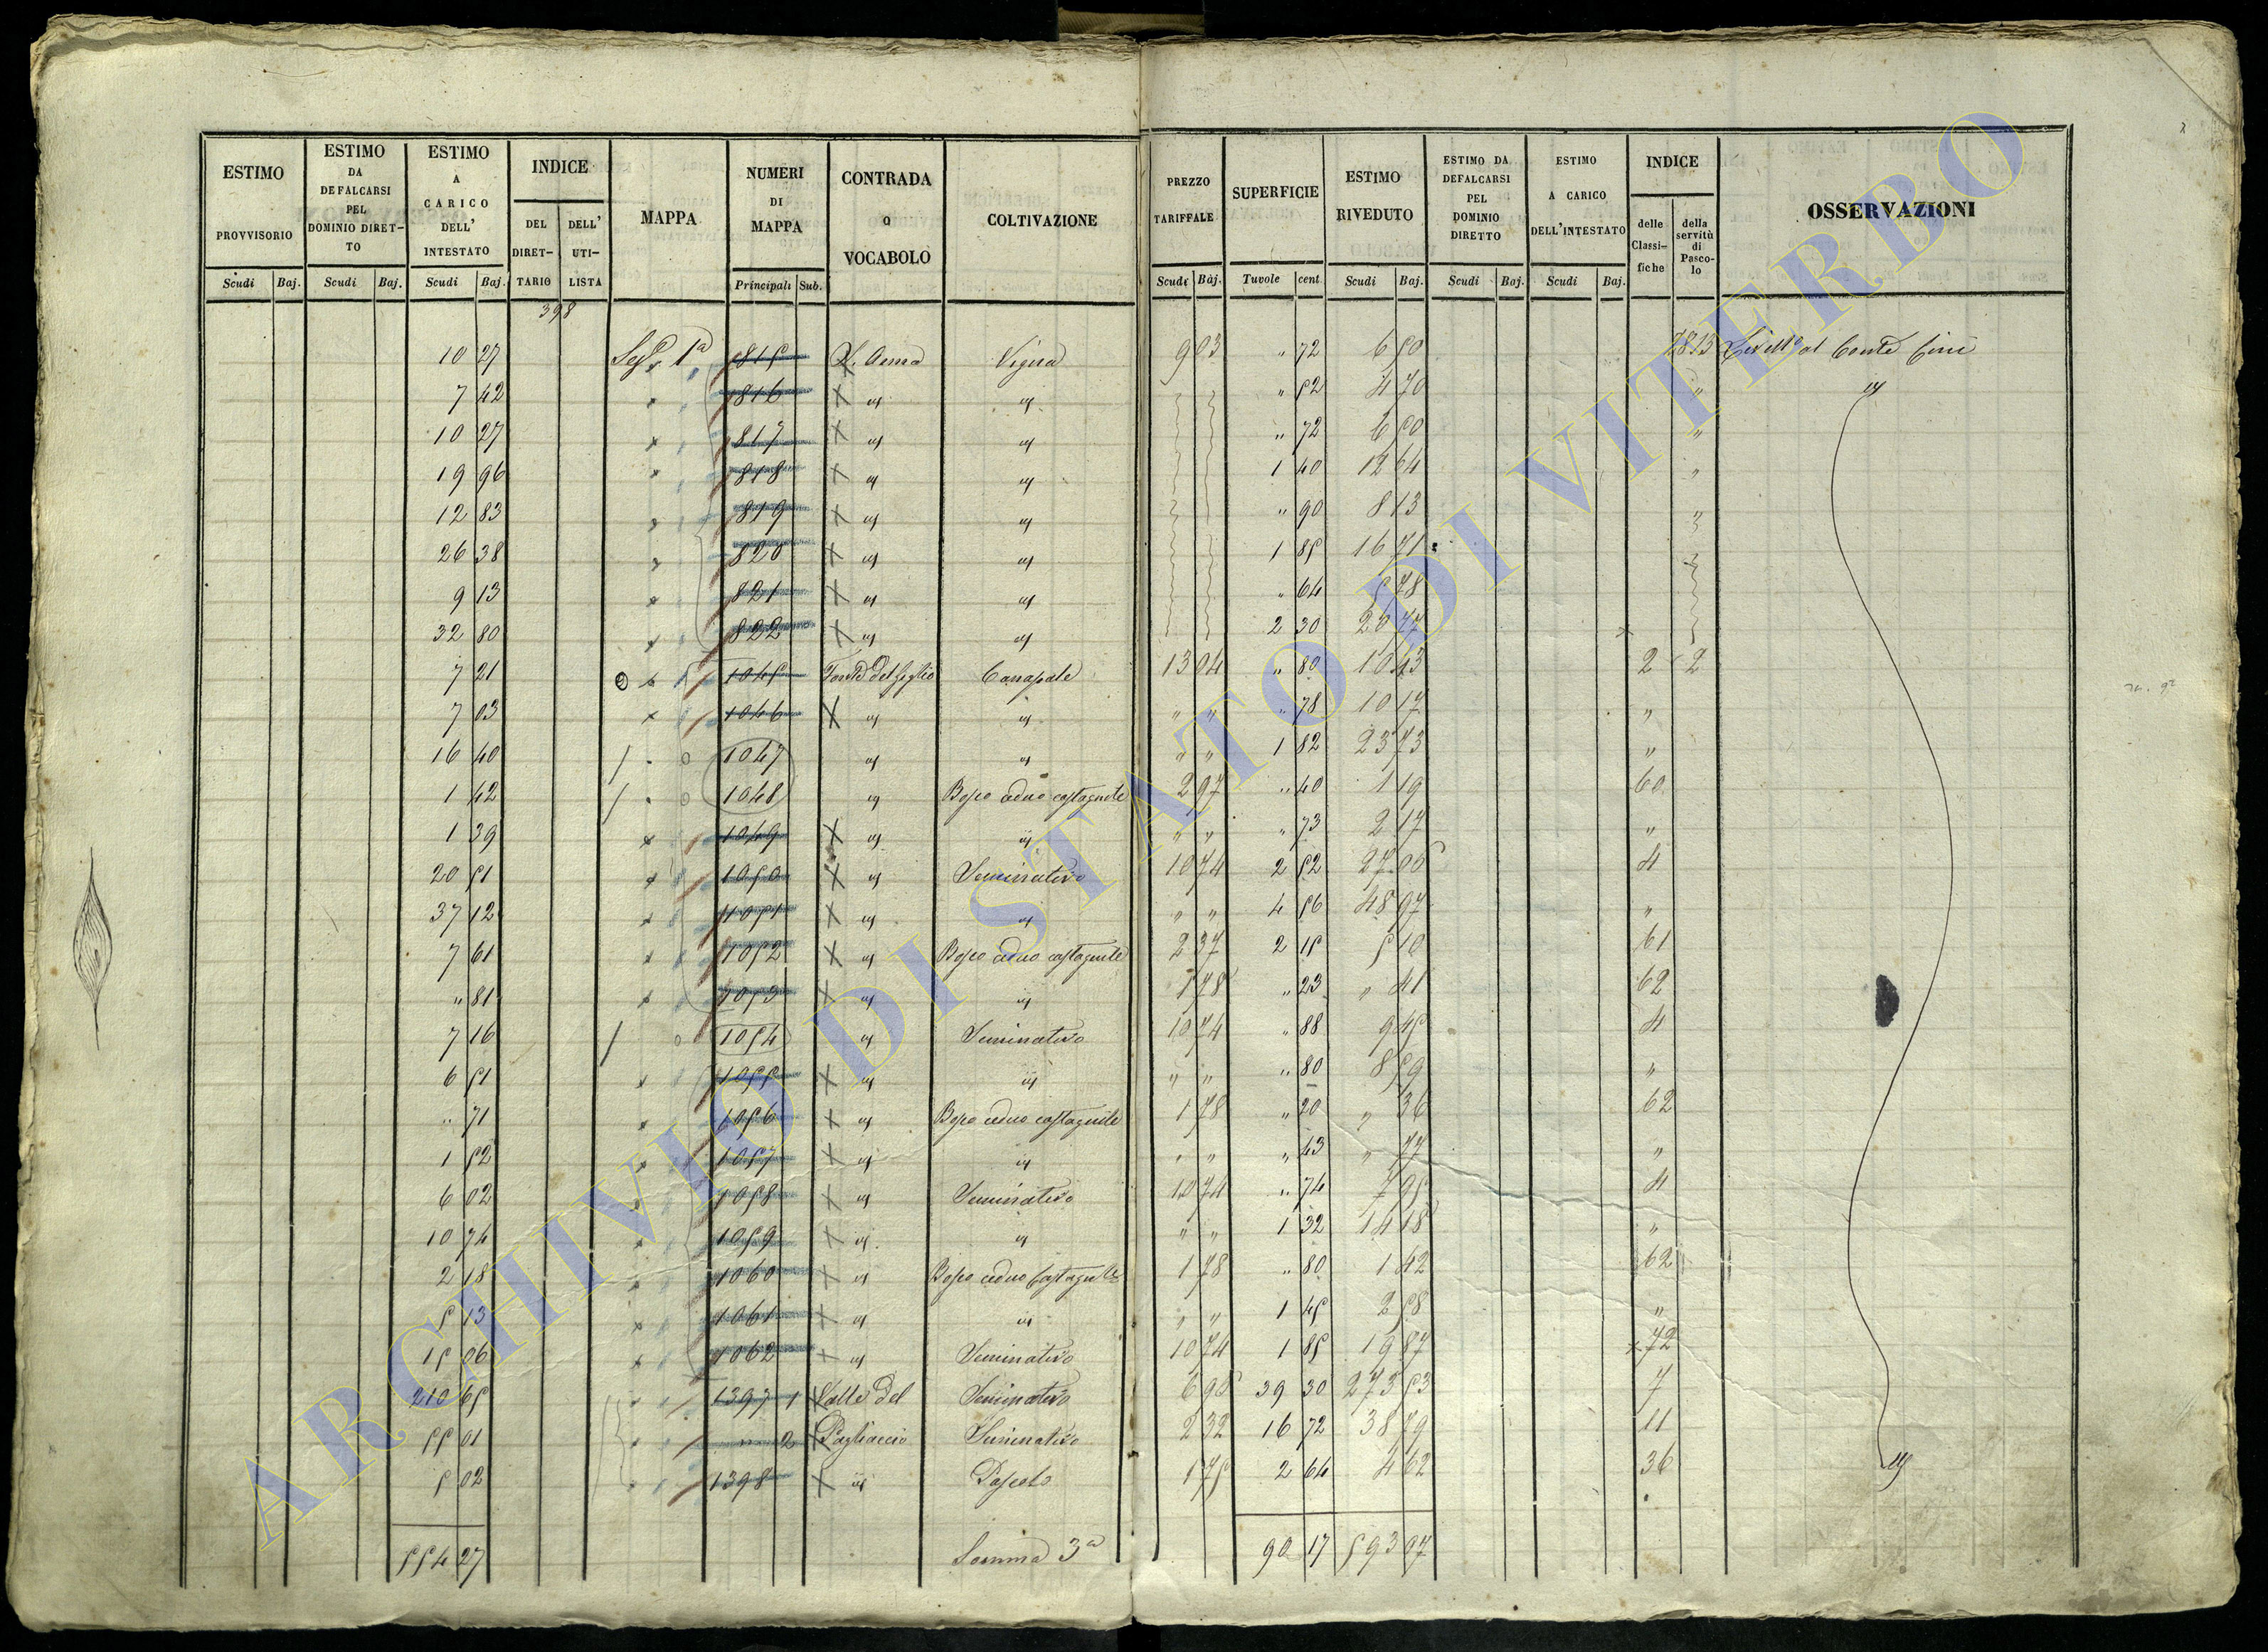 ESTIMO PROVVISORIO | ESTIMO DA DEFALCARSI PEL DOMINIO DIRET-TO | ESTIMO A CARICO DELL' INTESTATO | INDICE DEL DIRET-TARIO | DELL' UTI-LISTA | MAPPA | NUMERI DI MAPPA | CONTRADA o VOCABOLO | COLTIVAZIONE | PREZZO TARIFFALE | SUPERFICIE | ESTIMO RIVEDUTO | ESTIMO DA DEFALCARSI PEL DOMINIO DIRETTO | ESTIMO A CARICO DELL'INTESTATO | INDICE delle Classi-fiche | della servitù di Pasco-lo | OSSERVAZIONI
Scudi Baj. | Scudi Baj. | Scudi Baj. | Principali Sub. | Scudi Baj. | Tavole cent | Scudi Baj. | Scudi Baj. | Scudi Baj.
398
10 27 | 1ª | 815 | S. Anna | Vigna | 9 03 | " 72 | 6 50 | Conte
7 42 | 816 | " 52 | 4 70
10 27 | 817 | " 72 | 6 50
19 96 | 818 | 1 40 | 12 64
12 83 | 819 | " 90 | 8 13
26 38 | 820 | 1 85 | 16 71
9 13 | 821 | " 64 | 5 78
32 80 | 822 | 2 30 | 20 77
7 21 | 1045 | Canapale | 13 04 | " 80 | 10 43 | 2 2
7 03 | 1046 | " " | " 78 | 10 17 | "
16 40 | 1047 | " " | 1 82 | 23 73 | "
1 42 | 1048 | Bosco ceduo castagnile | 2 97 | " 40 | 1 19 | 60
1 39 | 1049 | " " | " 73 | 2 17 | "
20 51 | 1050 | Seminativo | 10 74 | 2 52 | 27 06 | 4
37 12 | 1051 | " " | 4 56 | 48 97 | "
7 61 | 1052 | Bosco ceduo castagnile | 2 37 | 2 15 | 5 10 | 61
" 81 | 1053 | 1 78 | " 23 | " 41 | 62
7 16 | 1054 | Seminativo | 10 74 | " 88 | 9 45 | 4
6 51 | 1055 | " " | " 80 | 8 59 | "
" 71 | 1056 | Bosco ceduo castagnile | 1 78 | " 20 | " 36 | 62
1 52 | 1057 | " " | " 43 | " 77 | "
6 02 | 1058 | Seminativo | 10 74 | " 74 | 7 95 | 4
10 74 | 1059 | " " | 1 32 | 14 18 | "
2 18 | 1060 | Bosco ceduo castagnile | 1 78 | " 80 | 1 42 | 62
5 13 | 1061 | " " | 1 45 | 2 58 | "
15 06 | 1062 | Seminativo | 10 74 | 1 85 | 19 87 | 72
210 65 | 1397 1 | Valle del | Seminativo | 6 96 | 39 30 | 273 53 | 7
55 01 | " 2 | Pagliaccio | Seminativo | 2 32 | 16 72 | 38 79 | 11
5 02 | 1398 | Pascolo | 1 75 | 2 64 | 4 62 | 36
554 27 | Somma 3ª | 90 17 | 593 07
ARCHIVIO DI STATO DI VITERBO